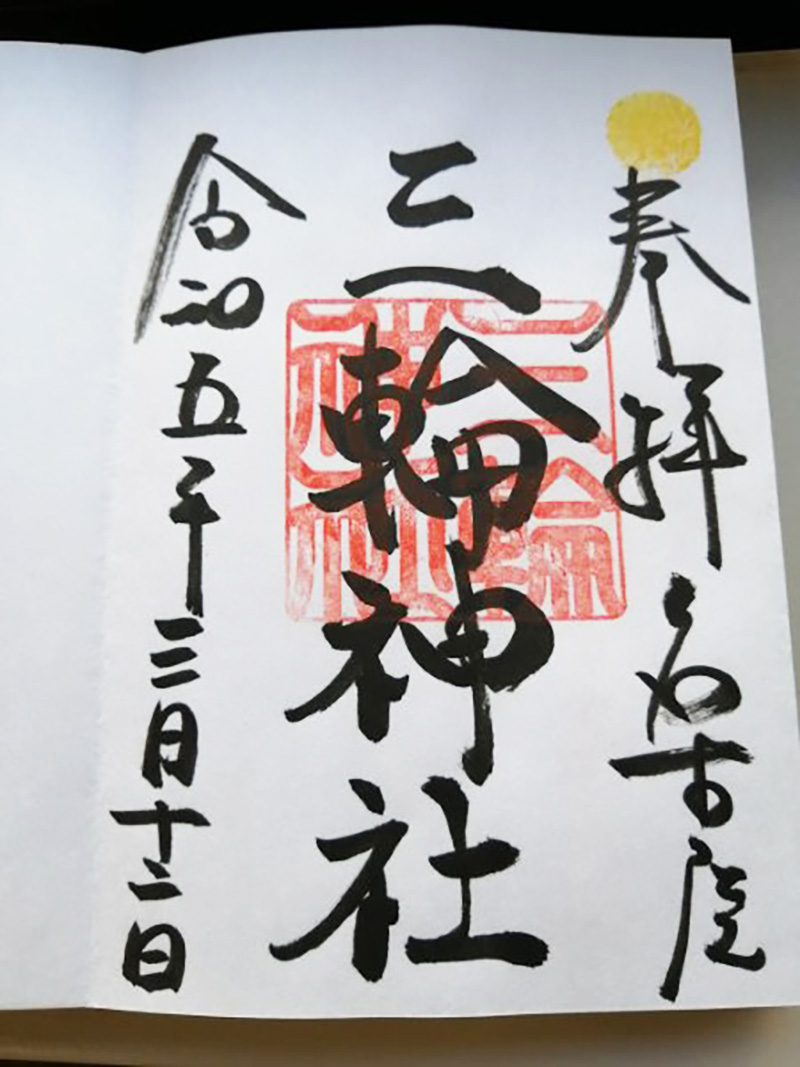 奉拝 名古屋
三輪神社
令和五年三月十二日
三輪
神社